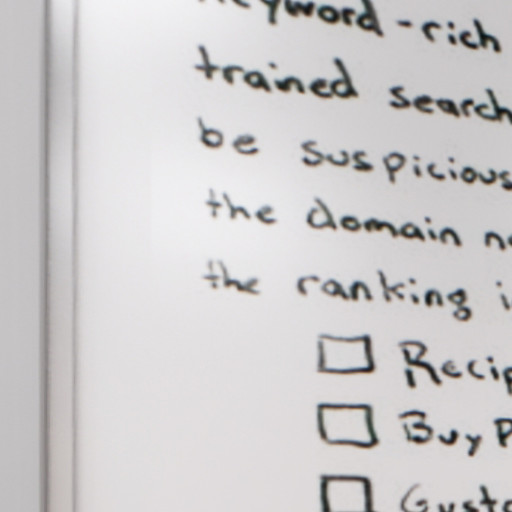 keyword-rich
trained search
be suspicious
the domain
the ranking
Recip
Buy P
Custo